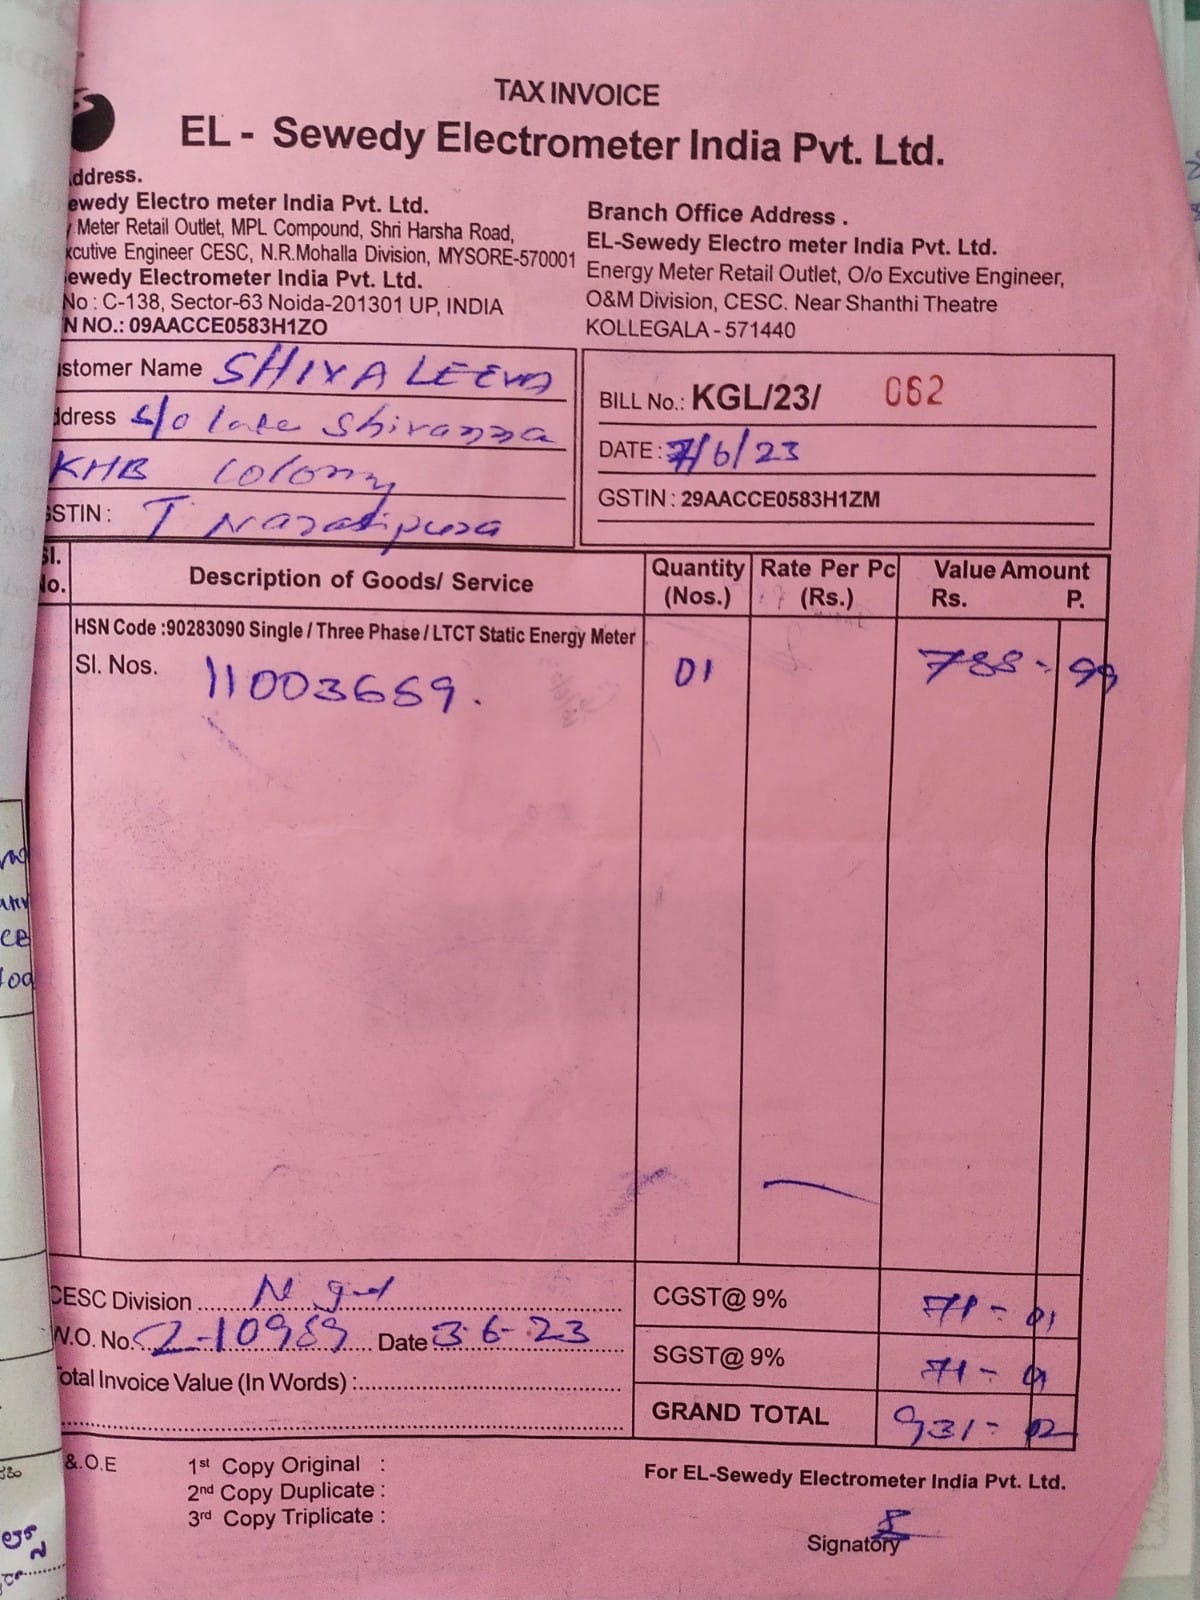 TAX INVOICE
EL - Sewedy Electrometer India Pvt. Ltd.
ddress.
ewedy Electro meter India Pvt. Ltd.
Meter Retail Outlet, MPL Compound, Shri Harsha Road,
xcutive Engineer CESC, N.R.Mohalla Division, MYSORE-570001
ewedy Electrometer India Pvt. Ltd.
No : C-138, Sector-63 Noida-201301 UP, INDIA
N NO.: 09AACCE0583H1ZO
Branch Office Address .
EL-Sewedy Electro meter India Pvt. Ltd.
Energy Meter Retail Outlet, O/o Excutive Engineer,
O&M Division, CESC. Near Shanthi Theatre
KOLLEGALA - 571440
stomer Name SHIVALEELA
ddress s/o late Shivanna
KHB Colony
GSTIN : T Narasipura
BILL No.: KGL/23/ 062
DATE : 7/6/23
GSTIN : 29AACCE0583H1ZM
Sl. No.
Description of Goods/ Service
Quantity (Nos.)
Rate Per Pc (Rs.)
Value Amount
Rs. P.
HSN Code :90283090 Single / Three Phase / LTCT Static Energy Meter
Sl. Nos. 11003659. 01 788-99
CESC Division
W.O. No. 2-10989 Date 3-6-23
Total Invoice Value (In Words) :
CGST@ 9% 71-01
SGST@ 9% 71-01
GRAND TOTAL 931-02
&.O.E
1st Copy Original :
2nd Copy Duplicate :
3rd Copy Triplicate :
For EL-Sewedy Electrometer India Pvt. Ltd.
Signatory